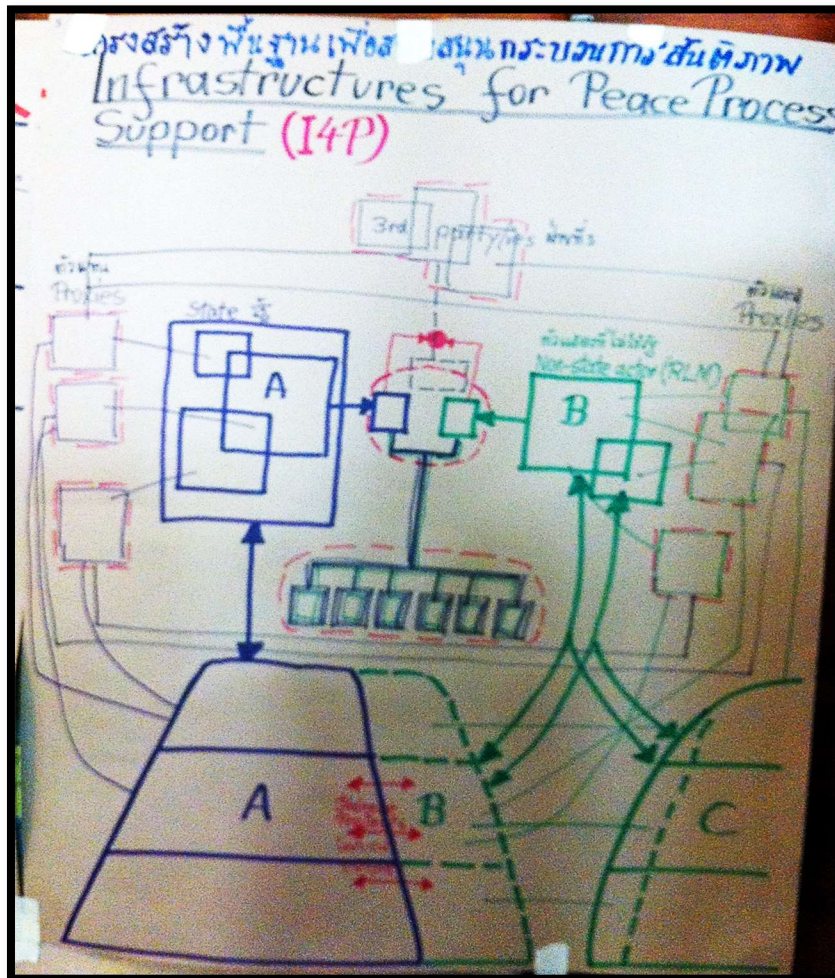 โครงสร้างพื้นฐานเพื่อสนับสนุนกระบวนการสันติภาพ
Infrastructures for Peace Process
Support (I4P)
3rd party/ies ฝ่ายที่3
ตัวแทน
Proxies
State รัฐ
A
ตัวแสดงที่ไม่ใช่รัฐ
Non-state actor (RLM)
B
ตัวแทน
Proxies
A
B
C